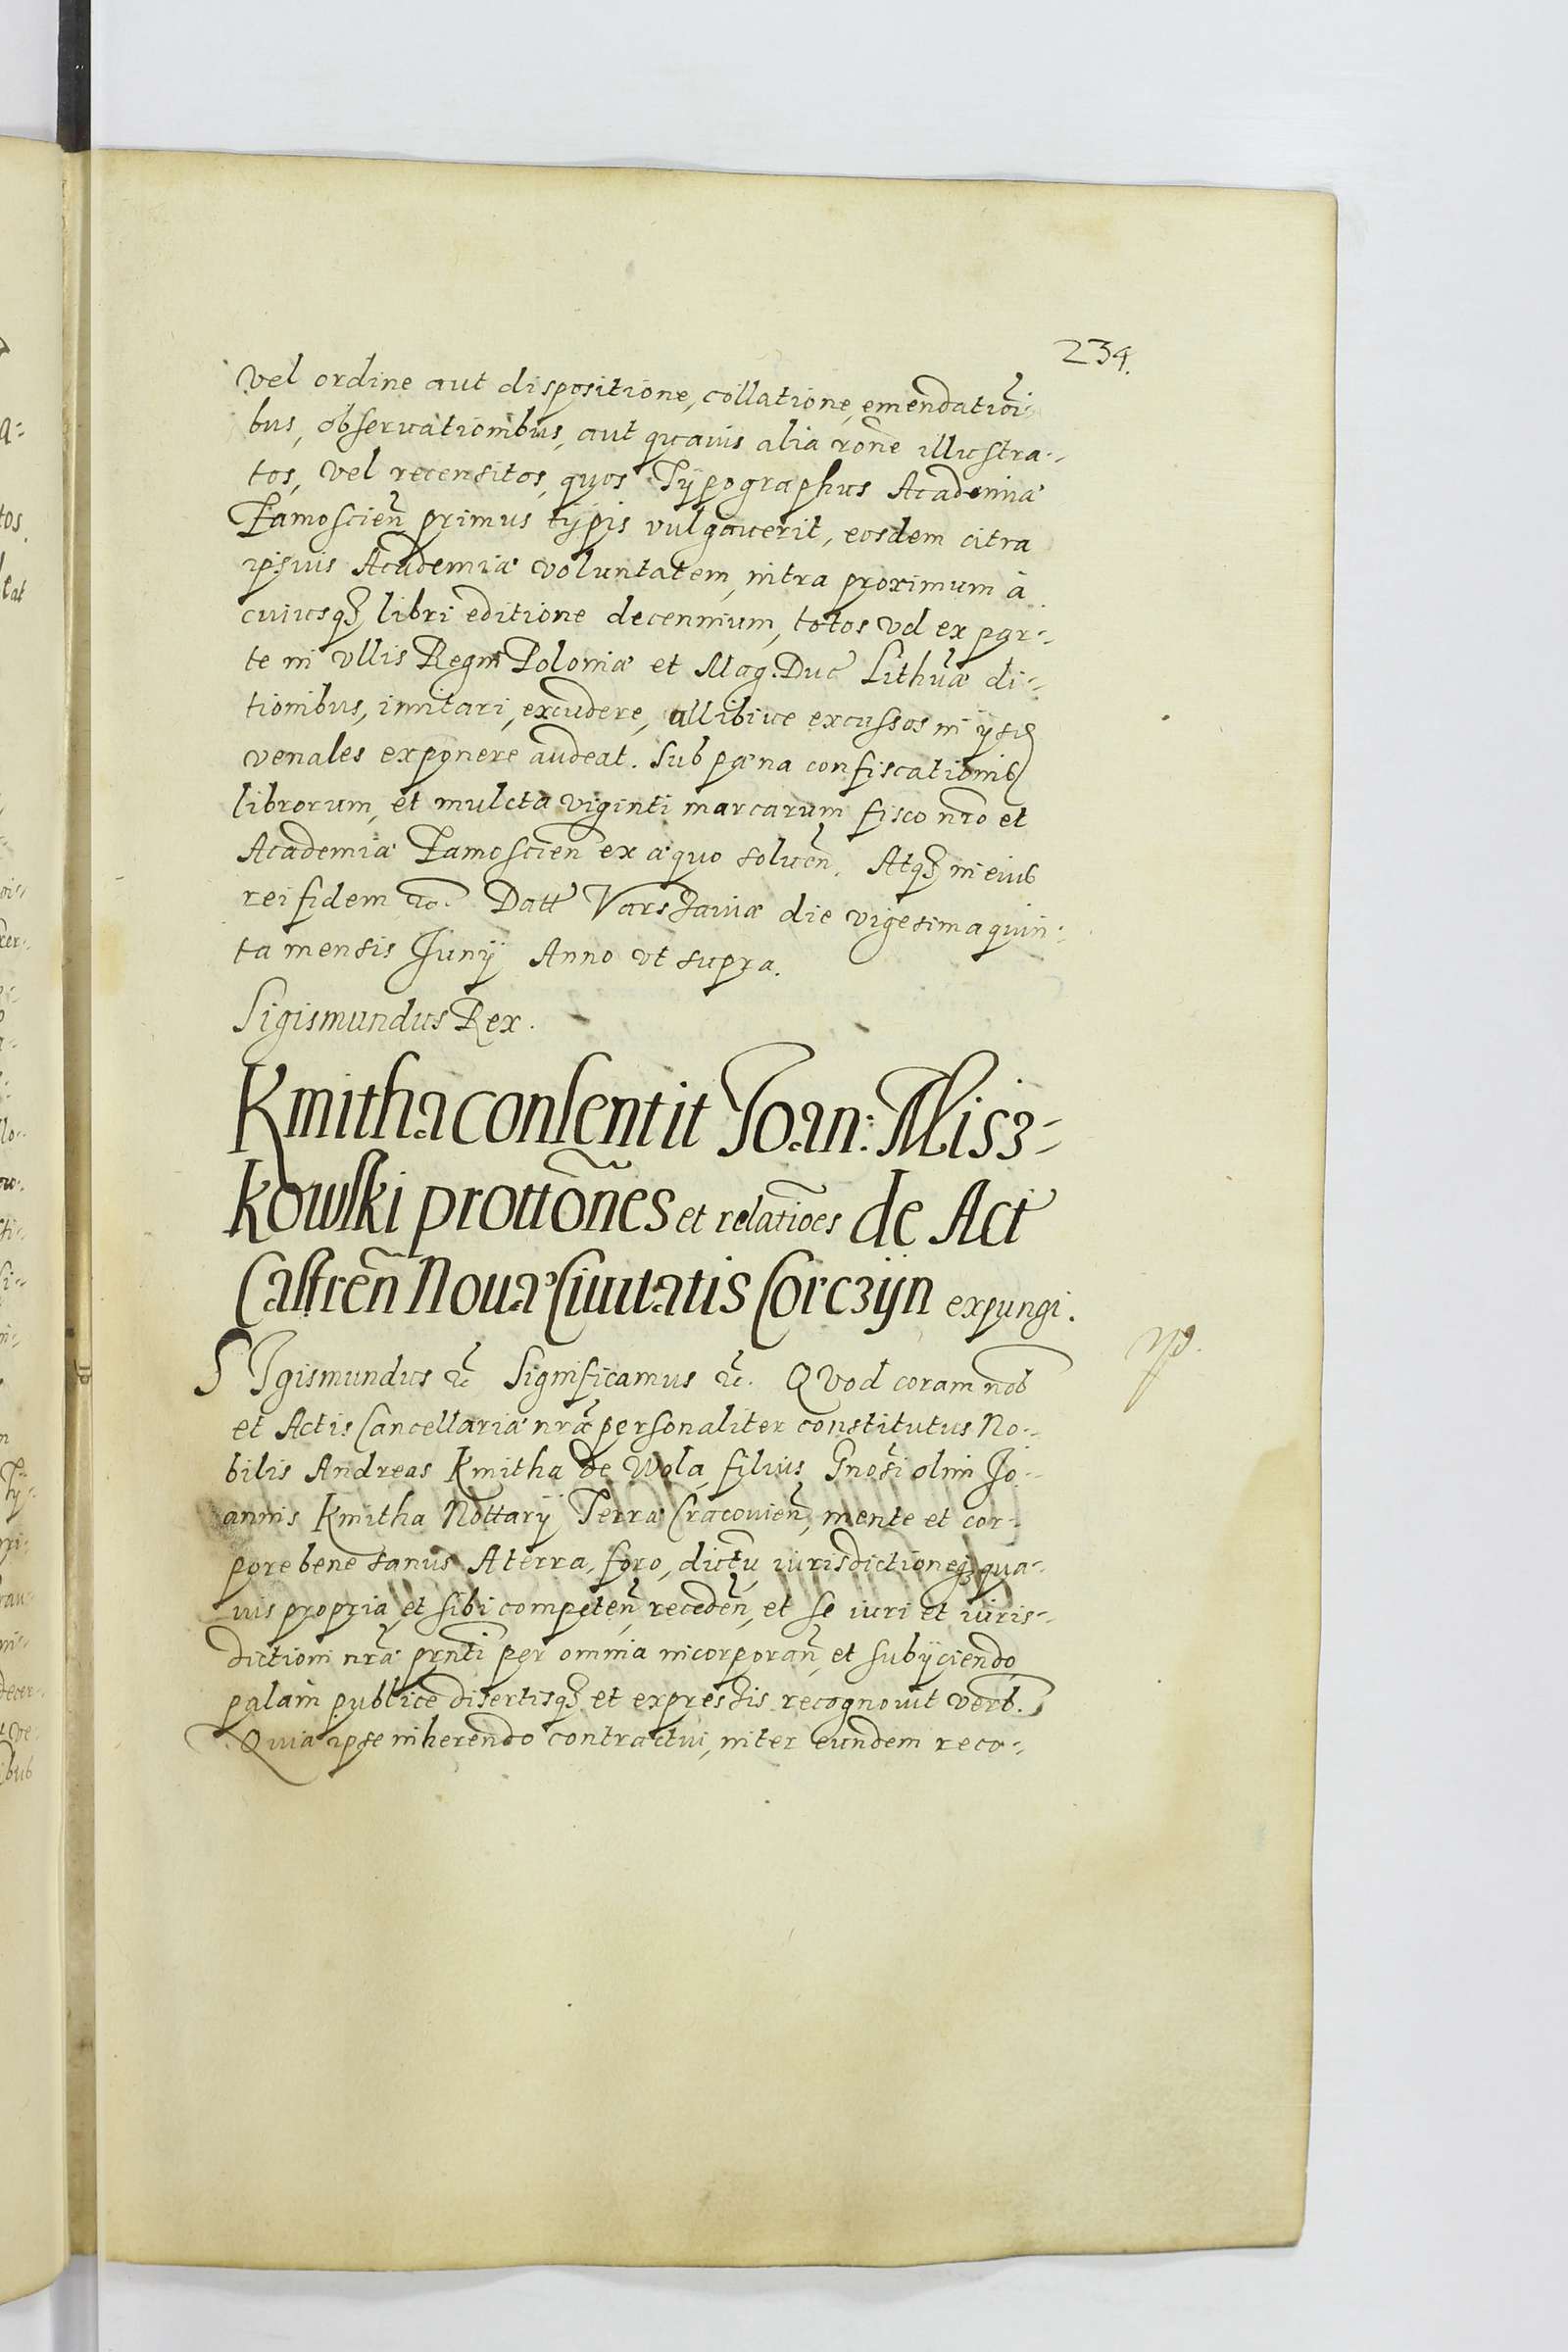 234.
vel ordine aut dispositione, collatione, emendationi
bus, obseruationibus, aut quauis alia rõne illustra-
tos, vel recensitos, quos Typographus Academiæ
Zamoscien̄ primus typis vulgauerit, eosdem citra
ipsius Academiæ voluntatem, intra proximum à
cuiusq3 libri editione decennium, totos vel ex par-
te in vllis Regni Poloniæ et Mag. Duc Lithuæ di-
tionibus, imitari, excudere, alibiue excussos in ijsd
venales exponere audeat. Sub pæna confiscationis
librorum, et mulcta viginti marcarum fisco nr̄o et
Academiæ Zamoscien̄ ex æquo soluen̄. Atq3 in eius
rei fidem etc. Datt Varsƶauiæ die vigesima quin-
ta mensis Junij Anno vt supra.
Sigismundus Rex.
Kmitha consentit Joan: Misz-
kowski prottõnes et relatiões de Act
Castren̄ Nouæ Ciuitatis Corczijn expungi.
SIgismundus etc Significamus etc. QVod coram nob
et Actis Cancellariæ nr̄æ personaliter constitutus No-
bilis Andreas Kmitha de Wola, filius Gnosi olim Jo-
annis Kmitha Nottarij Terræ Cracouien̄, mente et cor-
pore bene sanus A terra, foro, dictu iurisdictioneq3 qua-
uis propria, et sibi competen̄ receden̄, et se iuri et iuris-
dictioni nr̄æ pr̄nti per omnia incorporan̄ et subijciendo,
palam publice disertisq3 et expressis recognouit verb.
Quia ipse inherendo contractui, inter eundem reco-